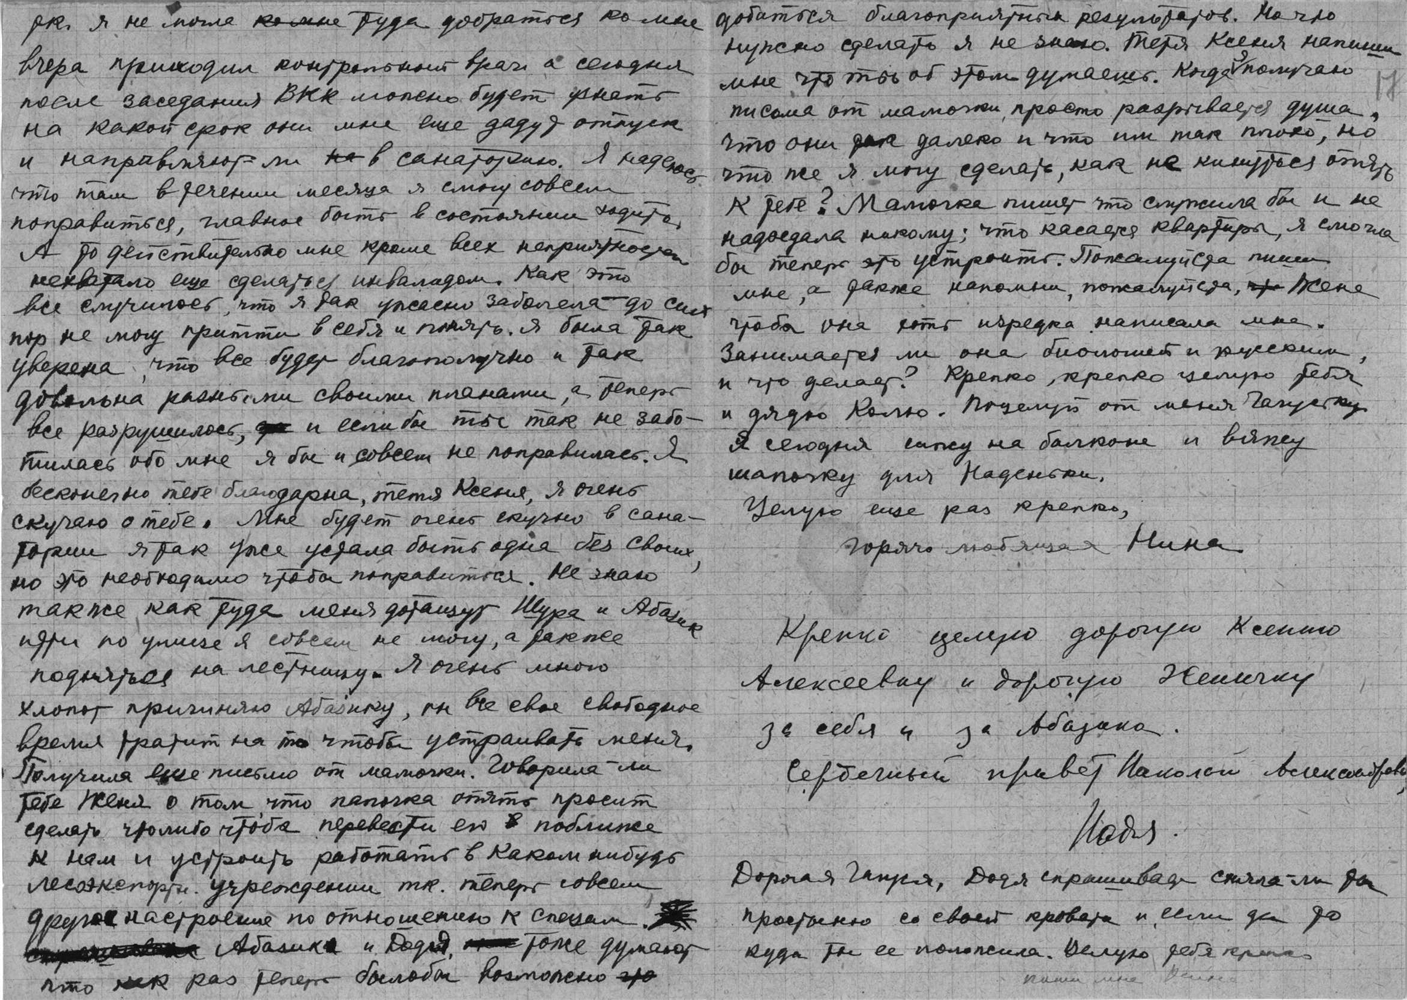 рк. я не могла туда добраться ко мне
вчера приходил контрольный врач а сегодня
после заседания ВКК можно будет узнать
на какой срок они мне еще дадут отпуск
и направляют ли в санаторию. Я надеюсь
что там в течении месяца я смогу совсем
поправиться, главное быть в состоянии ходить.
А то действительно мне кроме всех неприятностей
нехватало еще сделаться инвалидом. Как это
все случилось, что я так ужасно заболела до сих
пор не могу притти в себя и понять. Я была так
уверена, что все будет благополучно и так
довольна разными своими планами, а теперь
все разрушилось, и если бы ты так не забо-
тилась обо мне я бы и совсем не поправилась. Я
бесконечно тебе благодарна, тетя Ксеня, я очень
скучаю о тебе. Мне будет очень скучно в сана-
тории я так уже устала быть одна без своих,
но это необходимо чтобы поправиться. Не знаю
также как туда меня дотащут Шура и Абазик
идти по улице я совсем не могу, а также
подняться на лестницу. Я очень много
хлопот причиняю Абазику, он все свое свободное
время тратит на то чтобы устраивать меня.
Получила еще письмо от мамочки. Говорила-ли
тебе Женя о том что папочка опять просит
сделать чтолибо чтобы перевести его поближе
к нам и устроить работать в каком нибудь
лесоэкспортн. учреждении тк. теперь совсем
другое настроение по отношению к спецам.
Абазик и Додя, тоже думают
что как раз теперь былобы возможно
добиться благоприятных результатов. Но что
нужно сделать я не знаю. Тетя Ксеня напиши
мне что ты об этом думаешь. Когда я получаю
17
письма от мамочки, просто разрывается душа,
что они так далеко и что им так плохо, но
что же я могу сделать, как не кинуться опять
к тебе? Мамочка пишет что служила бы и не
надоедала никому; что касается квартиры, я смогла
бы теперь это устроить. Пожалуйста пиши
мне, а также напомни, пожалуйста, Жене
чтобы она хоть изредка написала мне.
Занимается ли она биологией и русским,
и что делает? Крепко, крепко целую тебя
и дядю Колю. Поцелуй от меня Гапусеку
Я сегодня сижу на балконе и вяжу
шапочку для Наденьки.
Целую еще раз крепко,
горячо любящая Нина
Крепко целую дорогую Ксению
Алексеевну и дорогую Женичку
за себя и за Абазика.
Сердечный привет Николай Александрович,
Надя.
Дорогая Гапуся, Додя спрашивает сняла-ли ты
простыню со своей кровати и если да то
куда ты ее положила. Целую тебя крепко
пиши мне